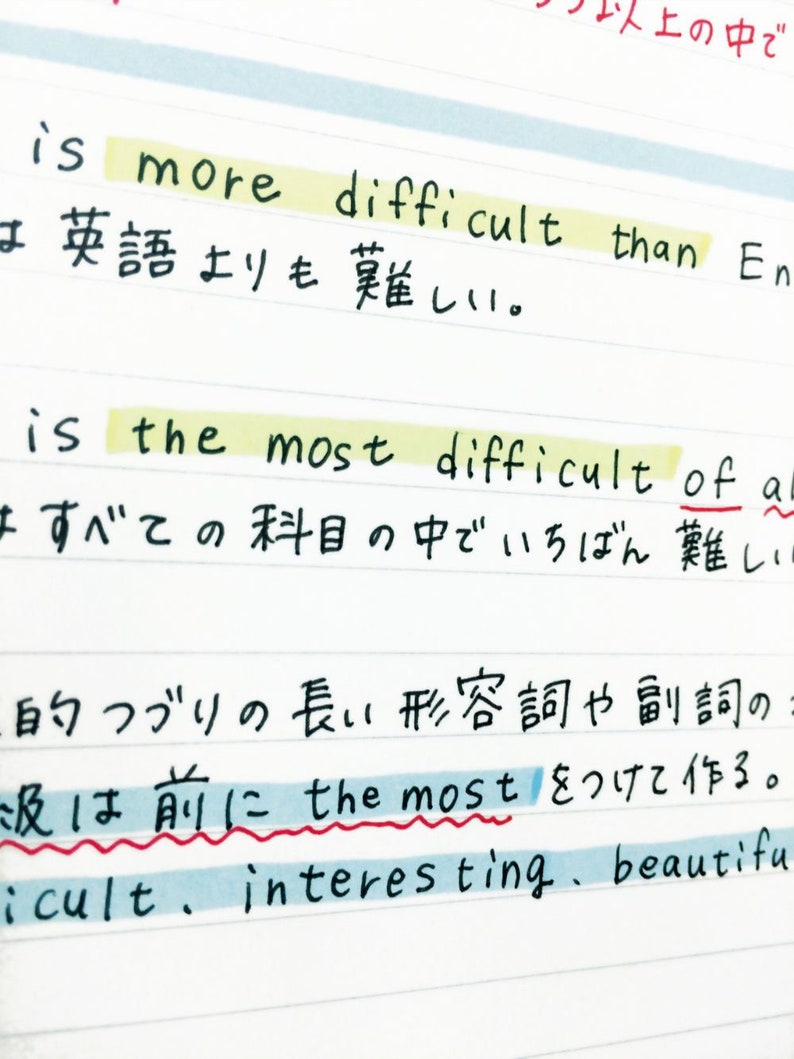 以上の中で
is more difficult than En
は 英語よりも 難しい。
is the most difficult of al
は すべての 科目の中でいちばん 難しい
的つづりの長い 形容詞や 副詞の
級は 前に the most をつけて作る。
icult . interesting . beautifu